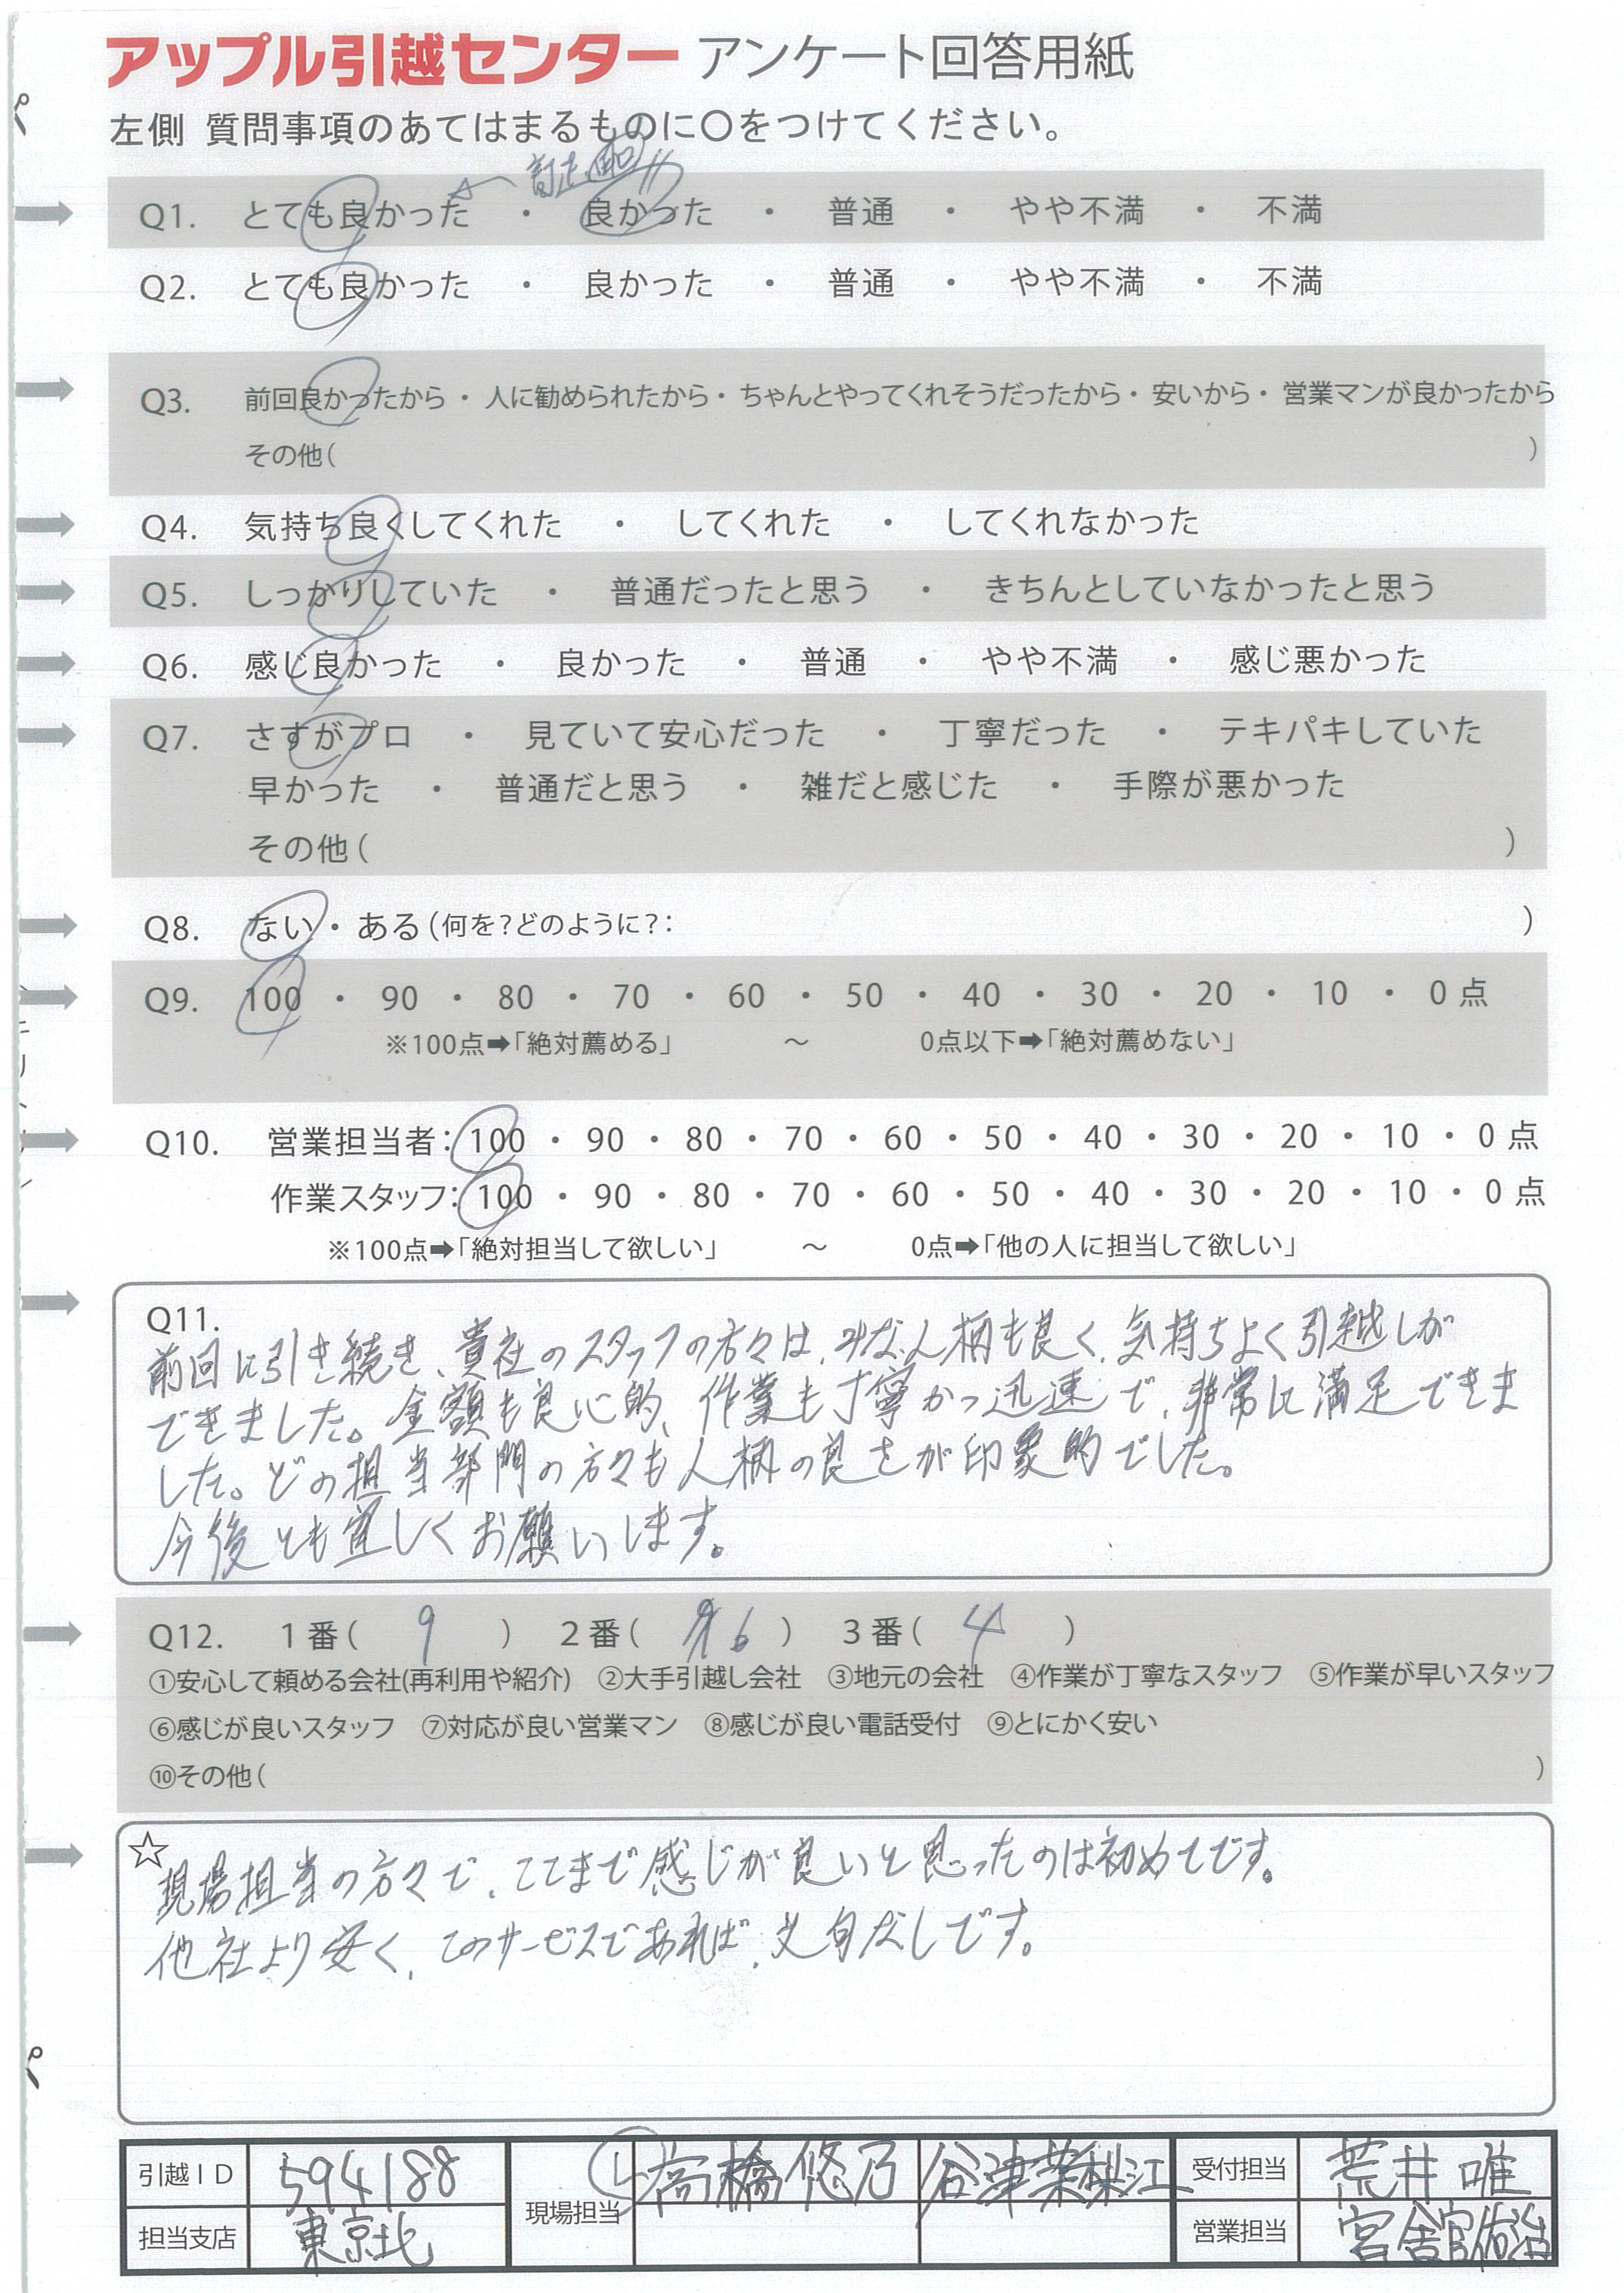 アップル引越センター アンケート回答用紙
左側 質問事項のあてはまるものに〇をつけてください。
Q1. とても良かった ・ 良かった ・ 普通 ・ やや不満 ・ 不満
Q2. とても良かった ・ 良かった ・ 普通 ・ やや不満 ・ 不満
Q3. 前回良かったから・ 人に勧められたから・ ちゃんとやってくれそうだったから・ 安いから・ 営業マンが良かったから
その他( )
Q4. 気持ち良くしてくれた ・ してくれた ・ してくれなかった
Q5. しっかりしていた ・ 普通だったと思う ・ きちんとしていなかったと思う
Q6. 感じ良かった ・ 良かった ・ 普通 ・ やや不満 ・ 感じ悪かった
Q7. さすがプロ ・ 見ていて安心だった ・ 丁寧だった ・ テキパキしていた
早かった ・ 普通だと思う ・ 雑だと感じた ・ 手際が悪かった
その他( )
Q8. ない・ある(何を?どのように?: )
Q9. 100 ・ 90 ・ 80 ・ 70 ・ 60 ・ 50 ・ 40 ・ 30 ・ 20 ・ 10 ・ 0 点
※100点➡「絶対薦める」 ～ 0点以下➡「絶対薦めない」
Q10. 営業担当者: 100 ・ 90 ・ 80 ・ 70 ・ 60 ・ 50 ・ 40 ・ 30 ・ 20 ・ 10 ・ 0 点
作業スタッフ: 100 ・ 90 ・ 80 ・ 70 ・ 60 ・ 50 ・ 40 ・ 30 ・ 20 ・ 10 ・ 0 点
※100点➡「絶対担当して欲しい」 ～ 0点➡「他の人に担当して欲しい」
Q11.
前回に引き続き、貴社のスタッフの方々は、みな人柄も良く、気持ちよく引越しが
できました。金額も良心的、作業も丁寧かつ迅速で、非常に満足できま
した。どの担当部門の方々も人柄の良さが印象的でした。
今後とも宜しくお願いします。
Q12. 1番( 9 ) 2番( 6 ) 3番( 4 )
①安心して頼める会社(再利用や紹介) ②大手引越し会社 ③地元の会社 ④作業が丁寧なスタッフ ⑤作業が早いスタッフ
⑥感じが良いスタッフ ⑦対応が良い営業マン ⑧感じが良い電話受付 ⑨とにかく安い
⑩その他( )
☆
現場担当の方々で、ここまで感じが良いと思ったのは初めてです。
他社より安く、このサービスであれば、文句なしです。
引越ＩＤ 594188 現場担当 Ⓛ高橋 悠乃 谷津茉梨江 受付担当 荒井 唯
担当支店 東京北 営業担当 宮舎官佑治